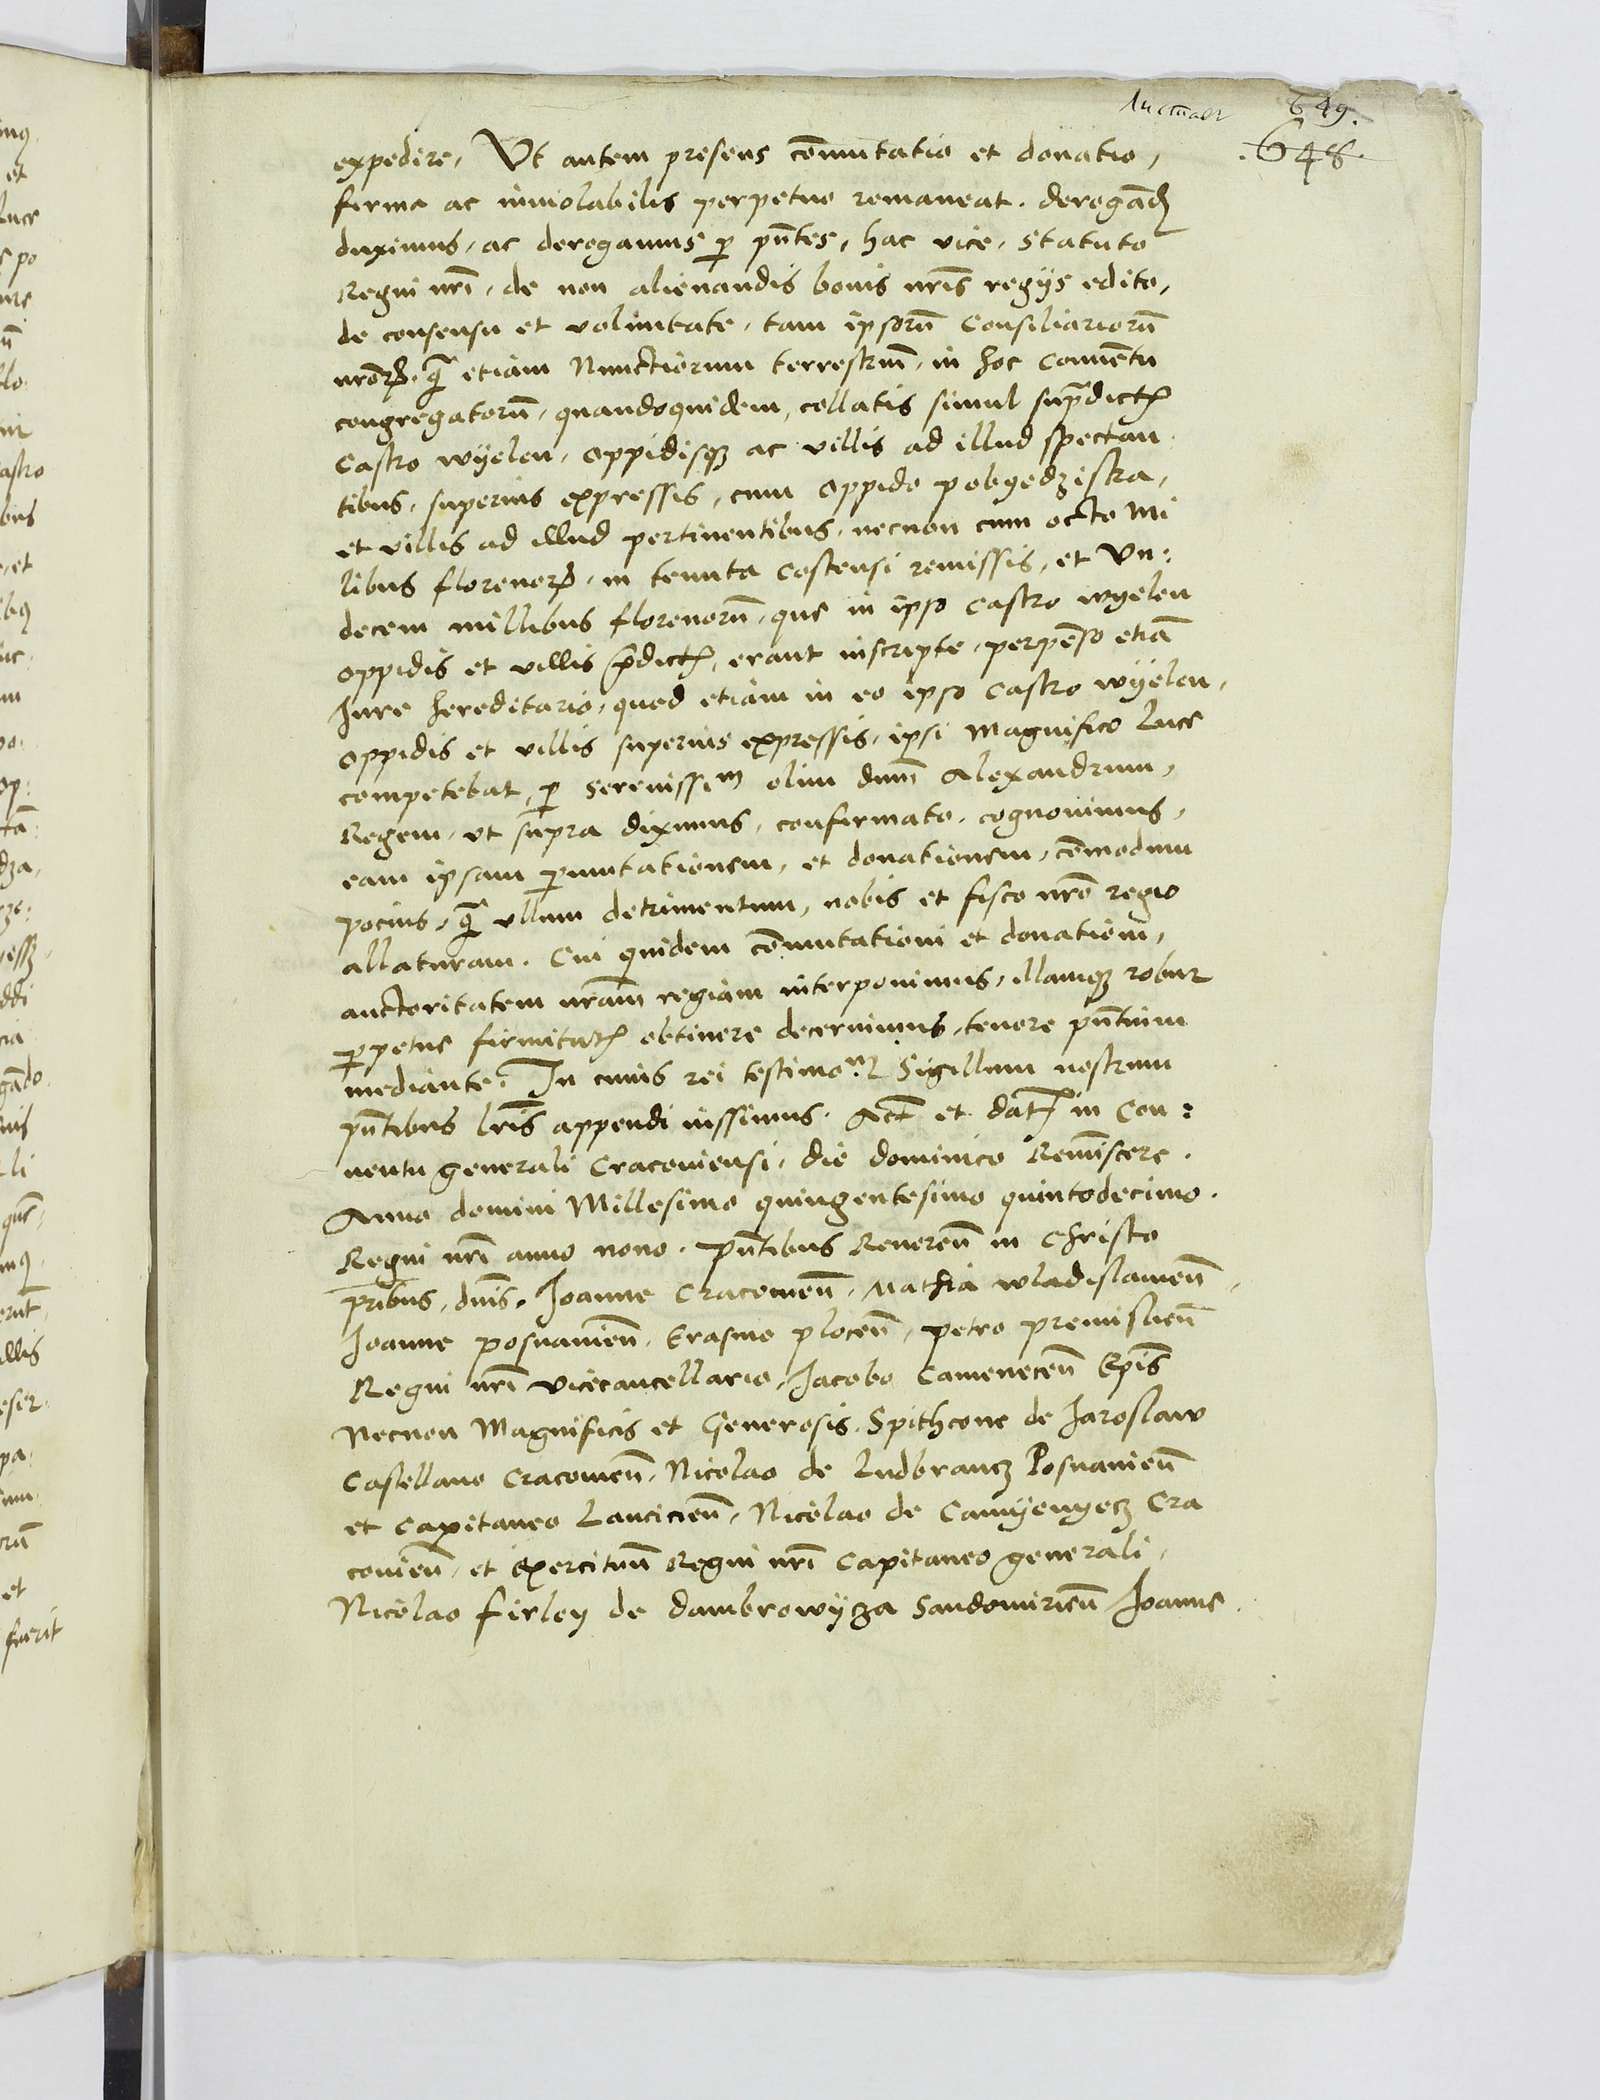 649.
648.
expedire, Vt autem presens cōmutatio et donatio,
firma ac inuiolabilis perpetuo remaneat. derogād
duximus, ac derogamus p pn̄tes, hac vice, statuto
Regni nrī, de non alienandis bonis nrīs regijs edito,
de consensu et voluntate, tam ipsorū Consiliariorū
nrōrꝝ, q̄ etiam Nunctiorum terrestriū, in hoc Conuētu
congregatorū, quandoquidem, collatis simul supradictꝭ
Castro wyelen, oppidisqꝫ ac villis ad illud spectan
tibus, superius expressis, cum oppido pobyedziska,
et villis ad illud pertinentibus, necnon cum octo Mi
libus florenorꝝ, in tenuta Costensi remissis, et Vn:
decem millibus florenorū, que in ipso Castro wyelen
oppidis et villis p̄dictꝭ, erant inscripte, perpēso etiā
Iure hereditario, quod etiam in eo ipso Castro wyelen,
oppidis et villis superius expressis, ipsi Magnifico Luce
competebat, p serenissim olim dnm̄ Alexandrum,
Regem, vt supra diximus, confirmato, cognouimus,
eam ipsam pmutationem, et donationem, cōmodum
pocius, q̄ ullum detrimentum, nobis et fisco nrō regio
allaturam. Cui quidem cōmutationi et donationi,
auctoritatem nrām regiam interponimus, illamqꝫ robur
ppetue firmitatꝭ obtinere decernimus, tenore pn̄tium
mediante. In cuius rei testimoni Sigillum nostrum
pn̄tibus lrīs appendi iussimus. Act et datꝭ in Con:
uentu generali Cracouiensi, die dominico Reminīscere.
Anno domini Millesimo quingentesimo quintodecimo.
Regni nrī anno nono. Pn̄tibus Reuereñ in Christo
pr̄ibus, dnīs, Ioanne Cracouieñ, Mathia wladislauieñ,
Ioanne posnanieñ, Erasmo ploceñ, petro premislieñ
Regni nrī vicecancellario, Iacobo Cameneceñ Epīs
Necnon Magnificis et Generosis, Spithcone de Iaroslaw
Castellano Cracouieñ, Nicolao de Ludbrancz Posnanieñ
et Capitaneo Lancicieñ, Nicolao de Camyenyecz Cra
couieñ, et Exercituū Regni nrī Capitaneo generali,
Nicolao firley de dambrowycza Sandomirieñ Ioanne